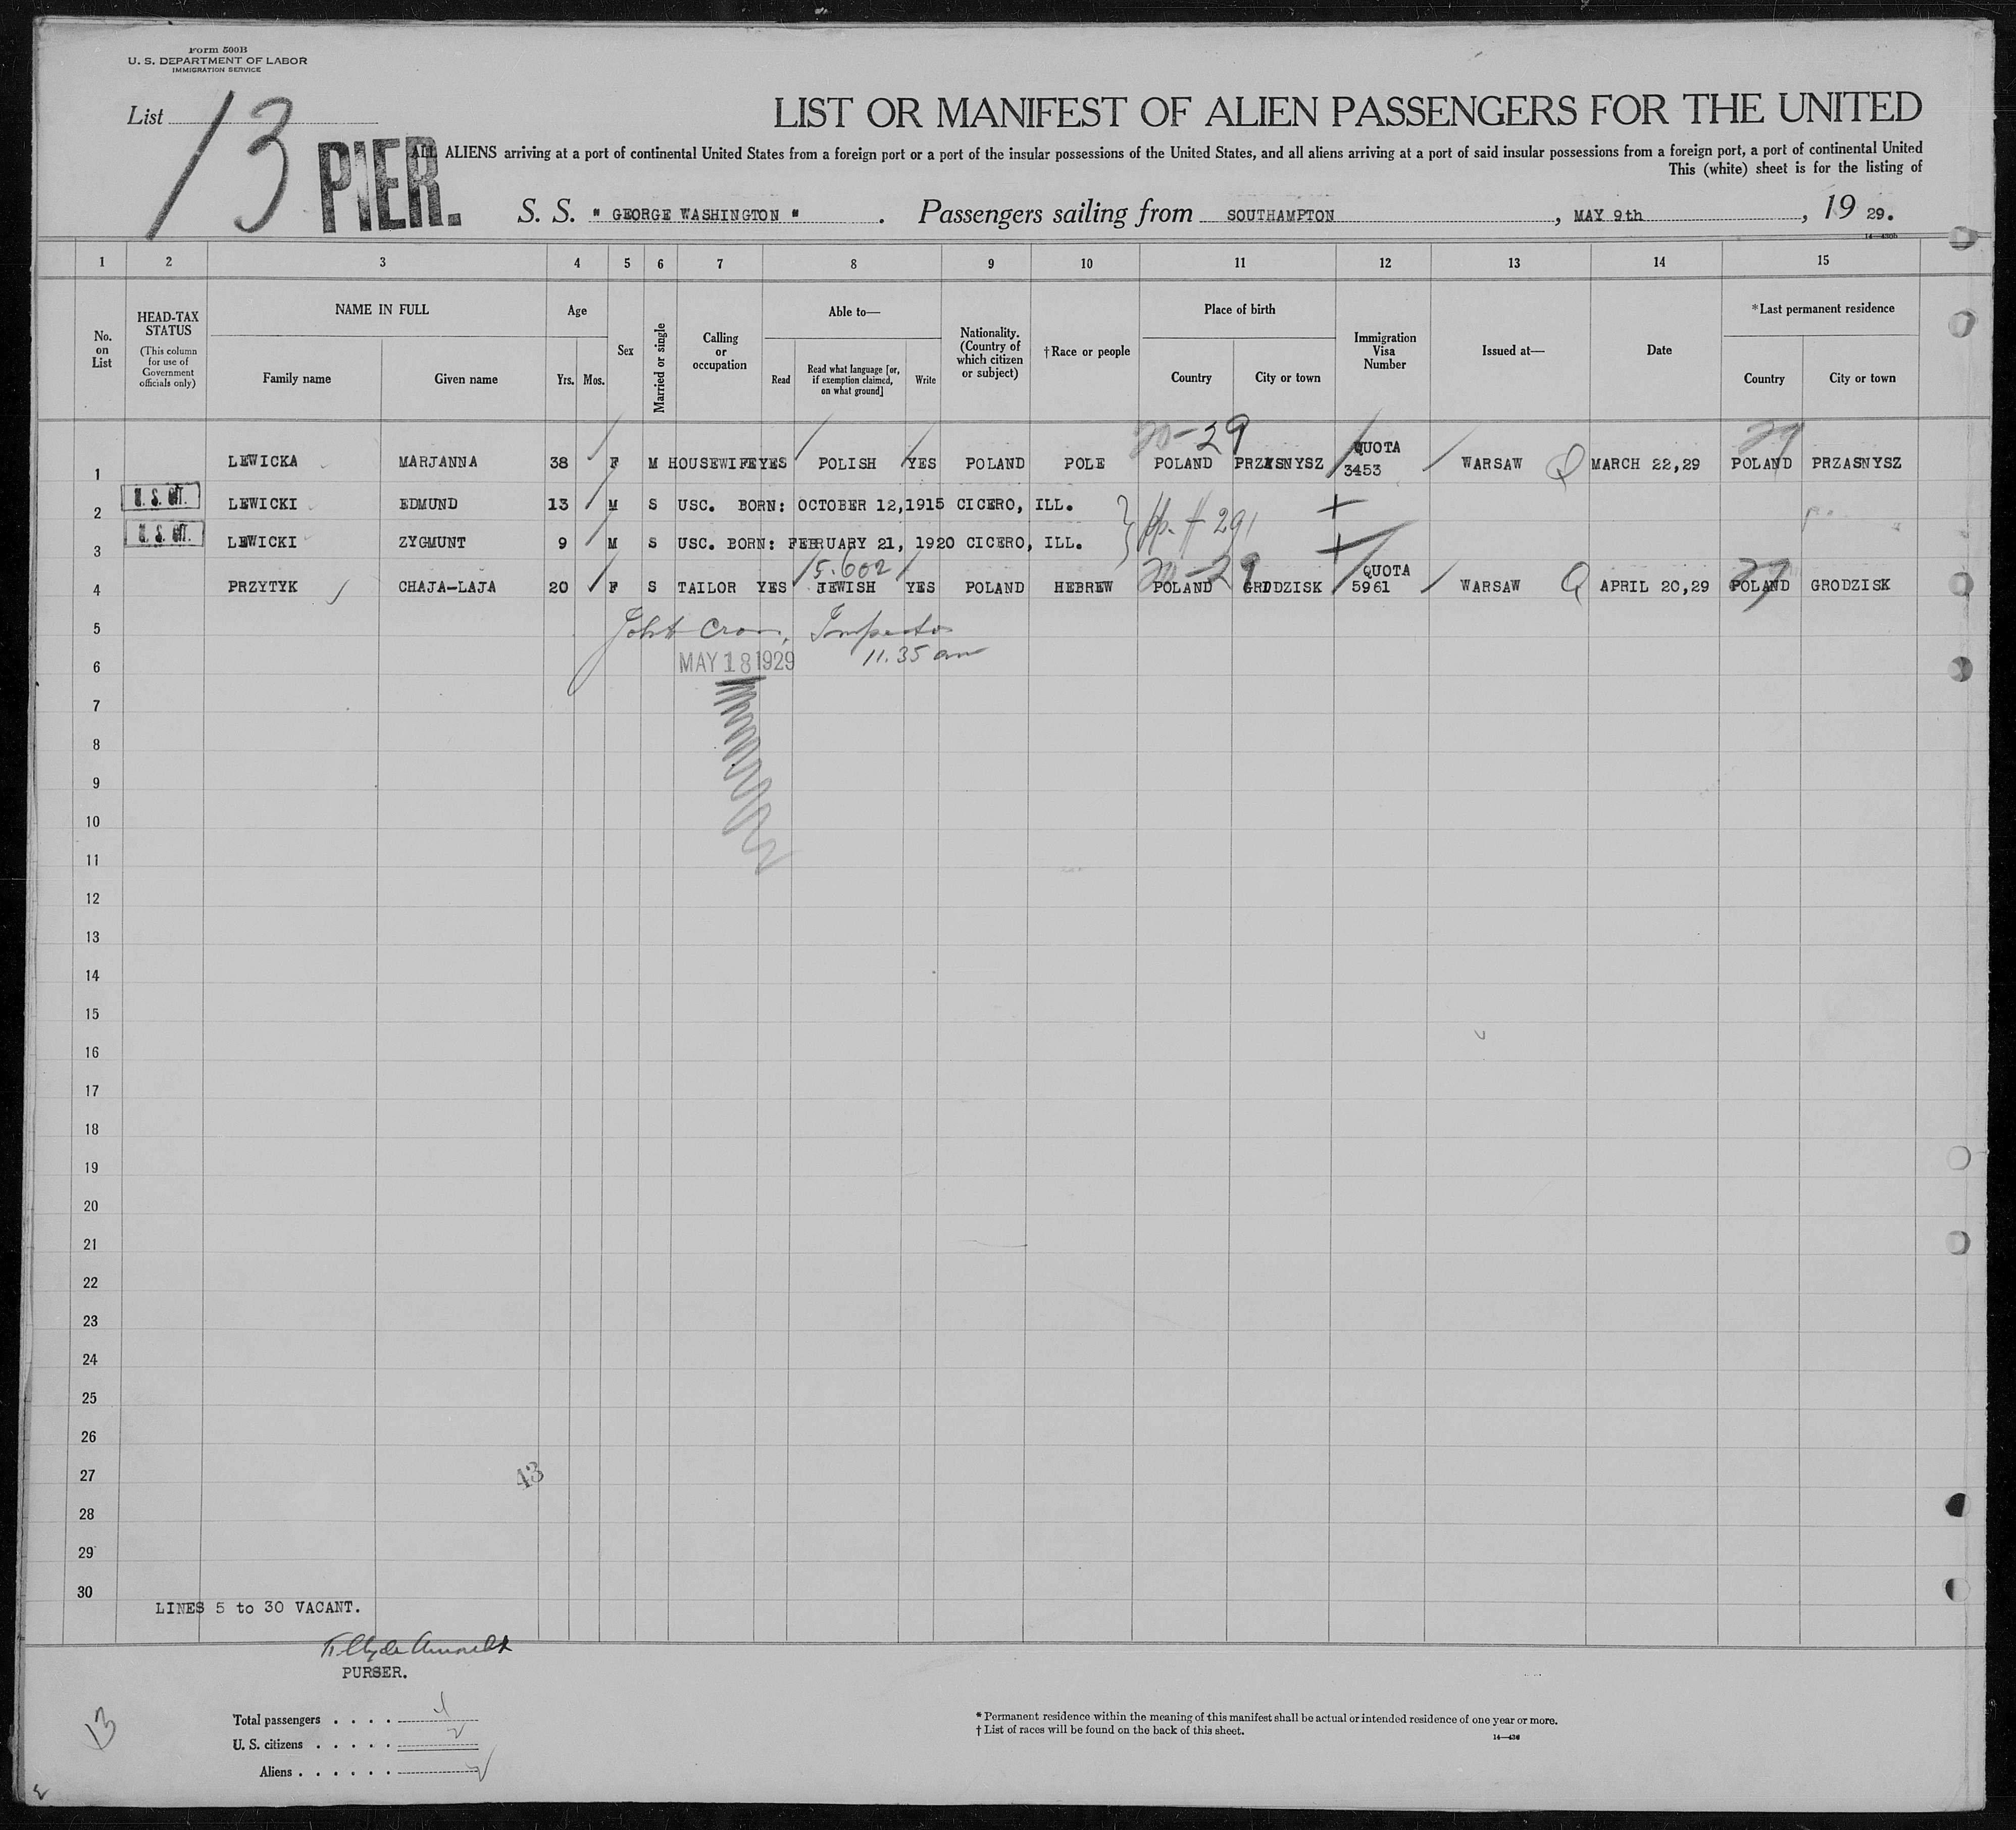 Form 500B
U. S. DEPARTMENT OF LABOR
IMMIGRATION SERVICE
List 13
PIER.
LIST OR MANIFEST OF ALIEN PASSENGERS FOR THE UNITED
ALL ALIENS arriving at a port of continental United States from a foreign port or a port of the insular possessions of the United States, and all aliens arriving at a port of said insular possessions from a foreign port, a port of continental United
This (white) sheet is for the listing of
S. S. " GEORGE WASHINGTON " . Passengers sailing from SOUTHAMPTON , MAY 9th , 19 29.
14—430b
1 2 3 4 5 6 7 8 9 10 11 12 13 14 15
No. on List
HEAD-TAX STATUS (This column for use of Government officials only)
NAME IN FULL
Family name Given name
Age
Yrs. Mos.
Sex
Married or single
Calling or occupation
Able to—
Read Read what language [or, if exemption claimed, on what ground] Write
Nationality. (Country of which citizen or subject)
†Race or people
Place of birth
Country City or town
Immigration Visa Number
Issued at—
Date
*Last permanent residence
Country City or town
20-29 29
1 LEWICKA MARJANNA 38 F M HOUSEWIFE YES POLISH YES POLAND POLE POLAND PRZASNYSZ QUOTA 3453 WARSAW Q MARCH 22,29 POLAND PRZASNYSZ
2 U. S. CIT. LEWICKI EDMUND 13 M S USC. BORN: OCTOBER 12,1915 CICERO, ILL. +
3 U. S. CIT. LEWICKI ZYGMUNT 9 M S USC. BORN: FEBRUARY 21, 1920 CICERO, ILL. +
5.602 20-29 29
4 PRZYTYK CHAJA-LAJA 20 F S TAILOR YES JEWISH YES POLAND HEBREW POLAND GRODZISK QUOTA 5961 WARSAW Q APRIL 20,29 POLAND GRODZISK
5 Inspector
6 MAY 18 1929 11.35 am
7
8
9
10
11
12
13
14
15
16
17
18
19
20
21
22
23
24
25
26
27 43
28
29
30
LINES 5 to 30 VACANT.
PURSER.
13
Total passengers . . . . 4
U. S. citizens . . . . . 2
Aliens . . . . . . 2
* Permanent residence within the meaning of this manifest shall be actual or intended residence of one year or more.
† List of races will be found on the back of this sheet.
14—430
2